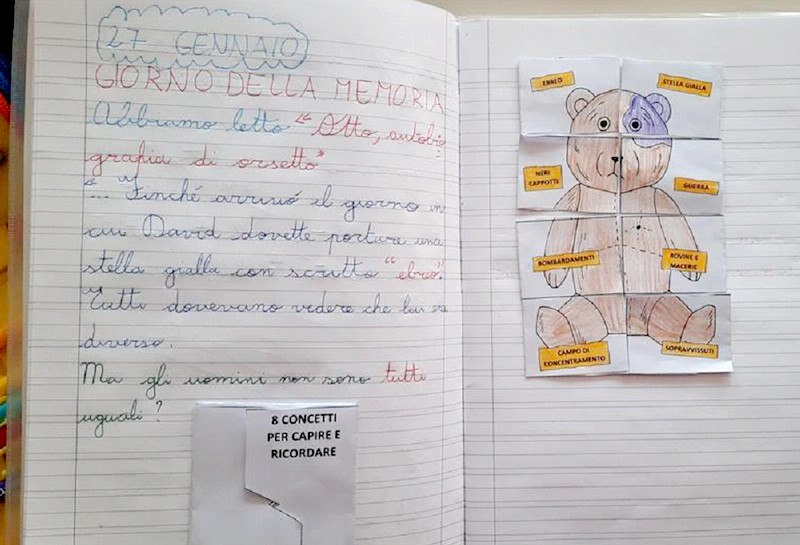 27 GENNAIO
GIORNO DELLA MEMORIA
Abbiamo letto "Otto, autobio
grafia di orsetto"
"... Finché arrivò il giorno in
cui David dovette portare una
stella gialla con scritto "ebreo".
Tutti dovevano vedere che lui era
diverso.
Ma gli uomini non sono tutti
uguali?
8 CONCETTI
PER CAPIRE E
RICORDARE
EBREO
STELLA GIALLA
NERI
CAPPOTTI
GUERRA
BOMBARDAMENTI
ROVINE E
MACERIE
CAMPO DI
CONCENTRAMENTO
SOPRAVVISSUTI